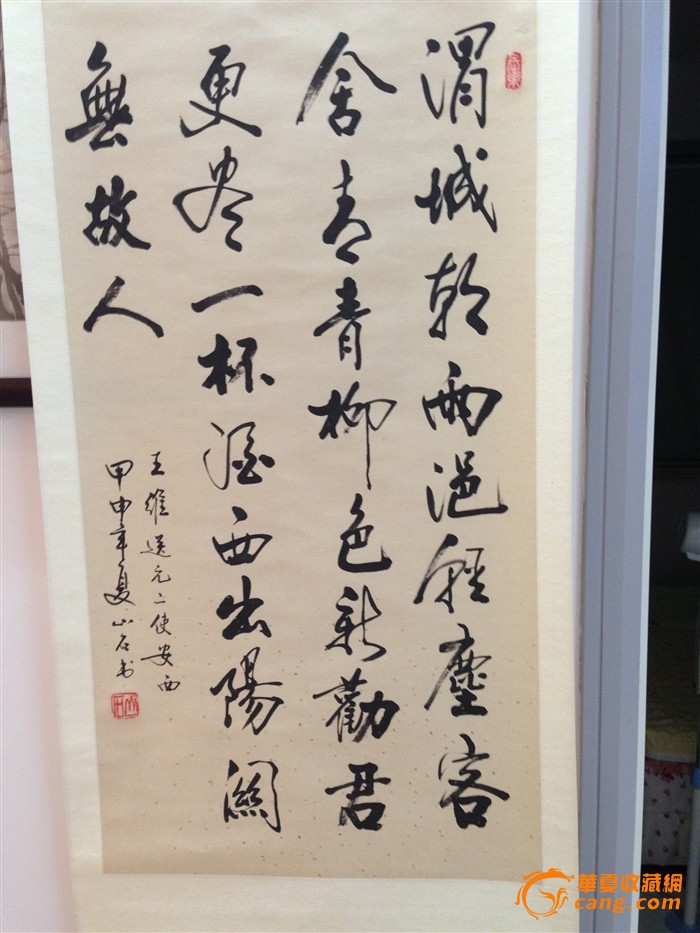 渭城朝雨浥輕塵客
舍青青柳色新勸君
更尽一杯酒西出陽關
無故人
王維送元二使安西
甲申年夏山石书
山石
華夏收藏網
cang.com